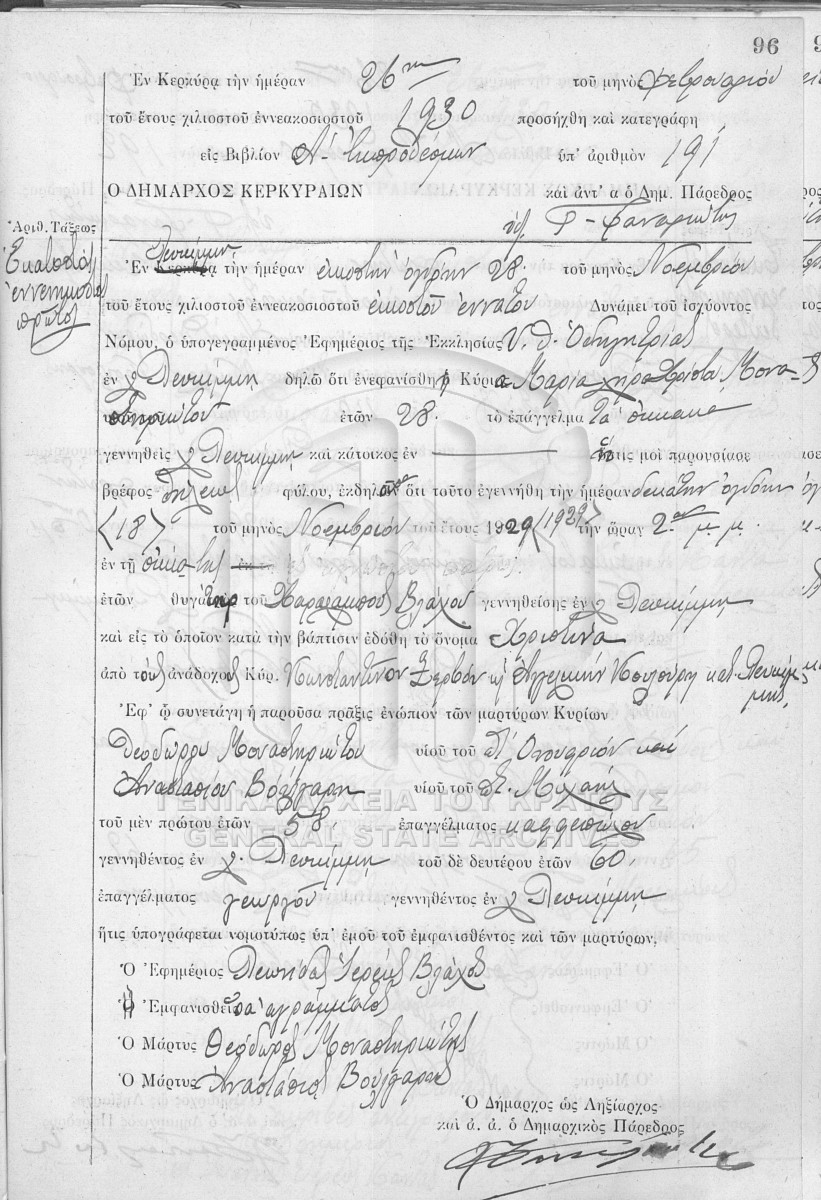 96
Ἐν Κερκύρᾳ τὴν ἡμέραν 26ην τοῦ μηνὸς Φεβρουαρίου
τοῦ ἔτους χιλιοστοῦ ἐννεακοσιοστοῦ 1930 προσήχθη καὶ κατεγράφη
εἰς Βιβλίον Α' Ἐκπροθέσμων ὑπ' ἀριθμὸν 191
Ο ΔΗΜΑΡΧΟΣ ΚΕΡΚΥΡΑΙΩΝ καὶ ἀντ' α ὁ Δημ. Πάρεδρος
Ἀριθ. Τάξεως
Ἑκατοστὸς ἐννενηκοστὸς πρῶτος
Λευκίμμῃ
Ἐν Κερκύρᾳ τὴν ἡμέραν εἰκοστὴν ὀγδόην 28 τοῦ μηνὸς Νοεμβρίου
τοῦ ἔτους χιλιοστοῦ ἐννεακοσιοστοῦ εἰκοστοῦ ἐννάτου Δυνάμει τοῦ ἰσχύοντος
Νόμου, ὁ ὑπογεγραμμένος Ἐφημέριος τῆς Ἐκκλησίας Υ. Θ. Ὁδηγητρίας
ἐν Λευκίμμῃ δηλῶ ὅτι ἐνεφανίσθη ἡ Κυρία Μαρία χήρα Χρίστου Μονα-
στηριώτου ἐτῶν 28. τὸ ἐπάγγελμα τὰ οἰκιακὰ
γεννηθεὶς Λευκίμμῃ καὶ κάτοικος ἐν ἥτις μοὶ παρουσίασε
βρέφος θήλεος φύλου, ἐκδηλοῦσα ὅτι τοῦτο ἐγεννήθη τὴν ἡμέραν δεκάτην ὀγδόην
(18) τοῦ μηνὸς Νοεμβρίου τοῦ ἔτους 1929 (1929) τὴν ὥραν 2αν μ.μ.
ἐν τῇ οἰκίᾳ της
ἐτῶν θυγάτηρ τοῦ Χαραλάμπους Βλάχου γεννηθείσης ἐν Λευκίμμῃ
καὶ εἰς τὸ ὁποῖον κατὰ τὴν βάπτισιν ἐδόθη τὸ ὄνομα Χριστίνα
ἀπὸ τοὺς ἀναδόχους Κυρ. Κωνσταντῖνον Ζερβὸν ἢ Ἀγγελικὴν κατ. Λευκίμ-
μης
Ἐφ' ᾧ συνετάγη ἡ παροῦσα πρᾶξις ἐνώπιον τῶν μαρτύρων Κυρίων
Θεοδώρου Μοναστηριώτου υἱοῦ τοῦ Σπυρίου καὶ
Ἀναστασίου Βούλγαρη υἱοῦ τοῦ Μιχαὴλ
ΓΕΝΙΚΑ ΑΡΧΕΙΑ ΤΟΥ ΚΡΑΤΟΥΣ
GENERAL STATE ARCHIVES
τοῦ μὲν πρώτου ἐτῶν 58 ἐπαγγέλματος καφφεπώλου
γεννηθέντος ἐν Λευκίμμῃ τοῦ δὲ δευτέρου ἐτῶν 60.
ἐπαγγέλματος γεωργοῦ γεννηθέντος ἐν Λευκίμμῃ
ἥτις ὑπογράφεται νομοτύπως ὑπ' ἐμοῦ τοῦ ἐμφανισθέντος καὶ τῶν μαρτύρων.
Ὁ Ἐφημέριος Λεωνίδας Ἱερεὺς Βλάχος
Ἡ Ἐμφανισθεῖσα ἀγράμματος
Ὁ Μάρτυς Θεόδωρος Μοναστηριώτης
Ὁ Μάρτυς Ἀναστάσιος Βούλγαρης
Ὁ Δήμαρχος ὡς Ληξίαρχος
καὶ ἀ. ἀ. ὁ Δημαρχικὸς Πάρεδρος